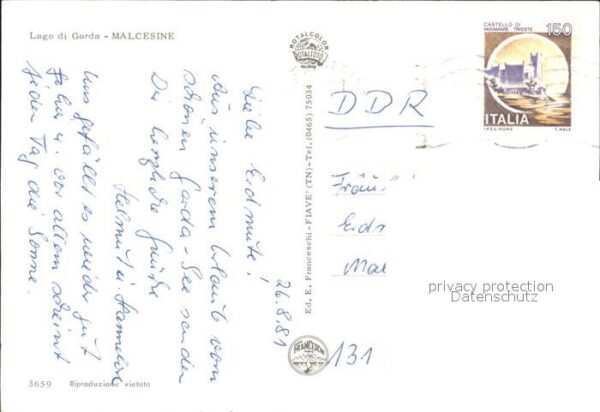 Lago di Garda - MALCESINE
26.8.81
Liebe Eidmute!
Aus unserem Urlaub vom
schönen Garda-See senden
Dir herzliche Grüße
Helmut u. Hannelore
Uns gefällt es wieder gut
hier u. vor allem scheint
jeden Tag die Sonne.
3659 Riproduzione vietata
ROTALCOLOR
ROTALFOTO
Ed. E. Franceschi - FIAVE (TN) - Tel. (0465) 75034
FRANCESCHI
CASTELLO DI
MIRAMARE TRIESTE
150
ITALIA
I.P.Z.S. - ROMA
DDR
Fräul
Eid
Mar
131
privacy protection
Datenschutz